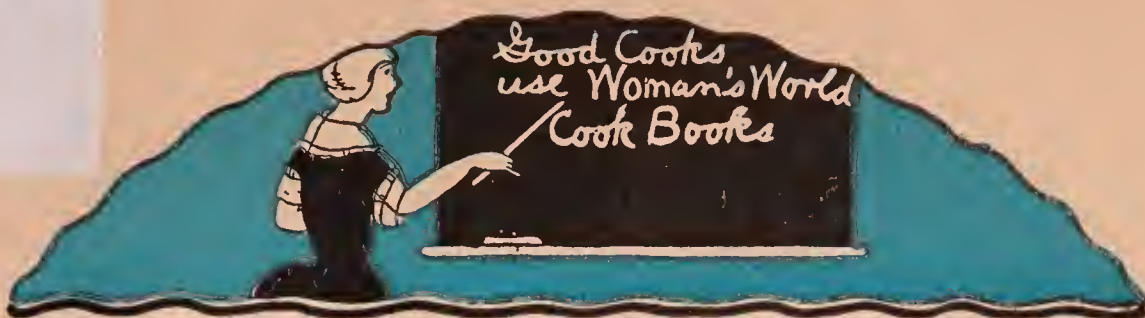 Good Cooks
use Woman's World
Cook Books